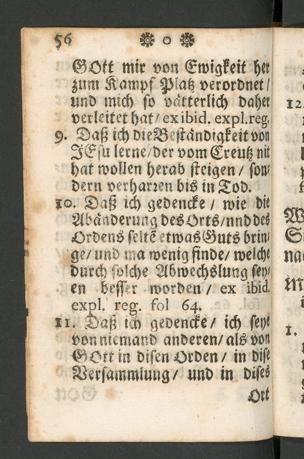 56
GOtt mir von Ewigkeit her
zum Kampf Platz verordnet/
und mich so vätterlich daher
verleitet hat/ ex ibid. expl. reg.
9. Daß ich die Beständigkeit von
JEsu lerne/ der vom Creutz nit
hat wollen herab steigen/ son-
dern verharren bis in Tod.
10. Daß ich gedencke/ wie die
Abänderung des Orts/ nnd des
Ordens seltē etwas Guts brin-
ge/ und ma wenig finde/ welche
durch solche Abwechslung sey-
en besser worden/ ex ibid.
expl. reg. fol 64.
11. Daß ich gedencke/ ich seye
von niemand anderen/ als von
GOtt in disen Orden/ in dise
Versammlung/ und in dises
Ort
12.
1.